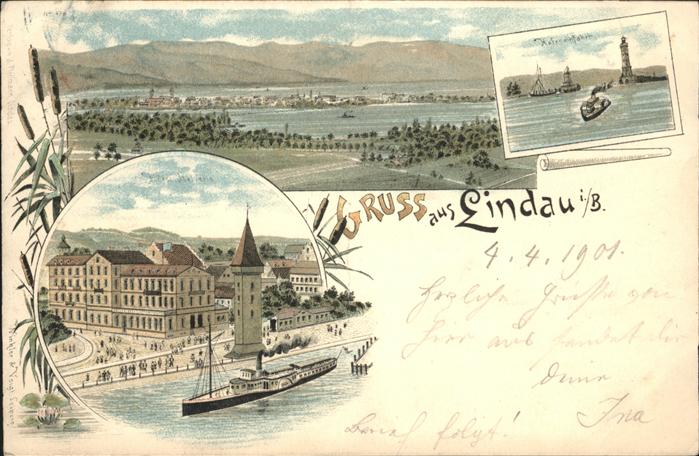 Hafeneinfahrt
GRUSS aus Lindau i/B.
4. 4. 1901.
Herzliche Grüsse von
hier aus sendet dir
Deine
Ina
Brief folgt!